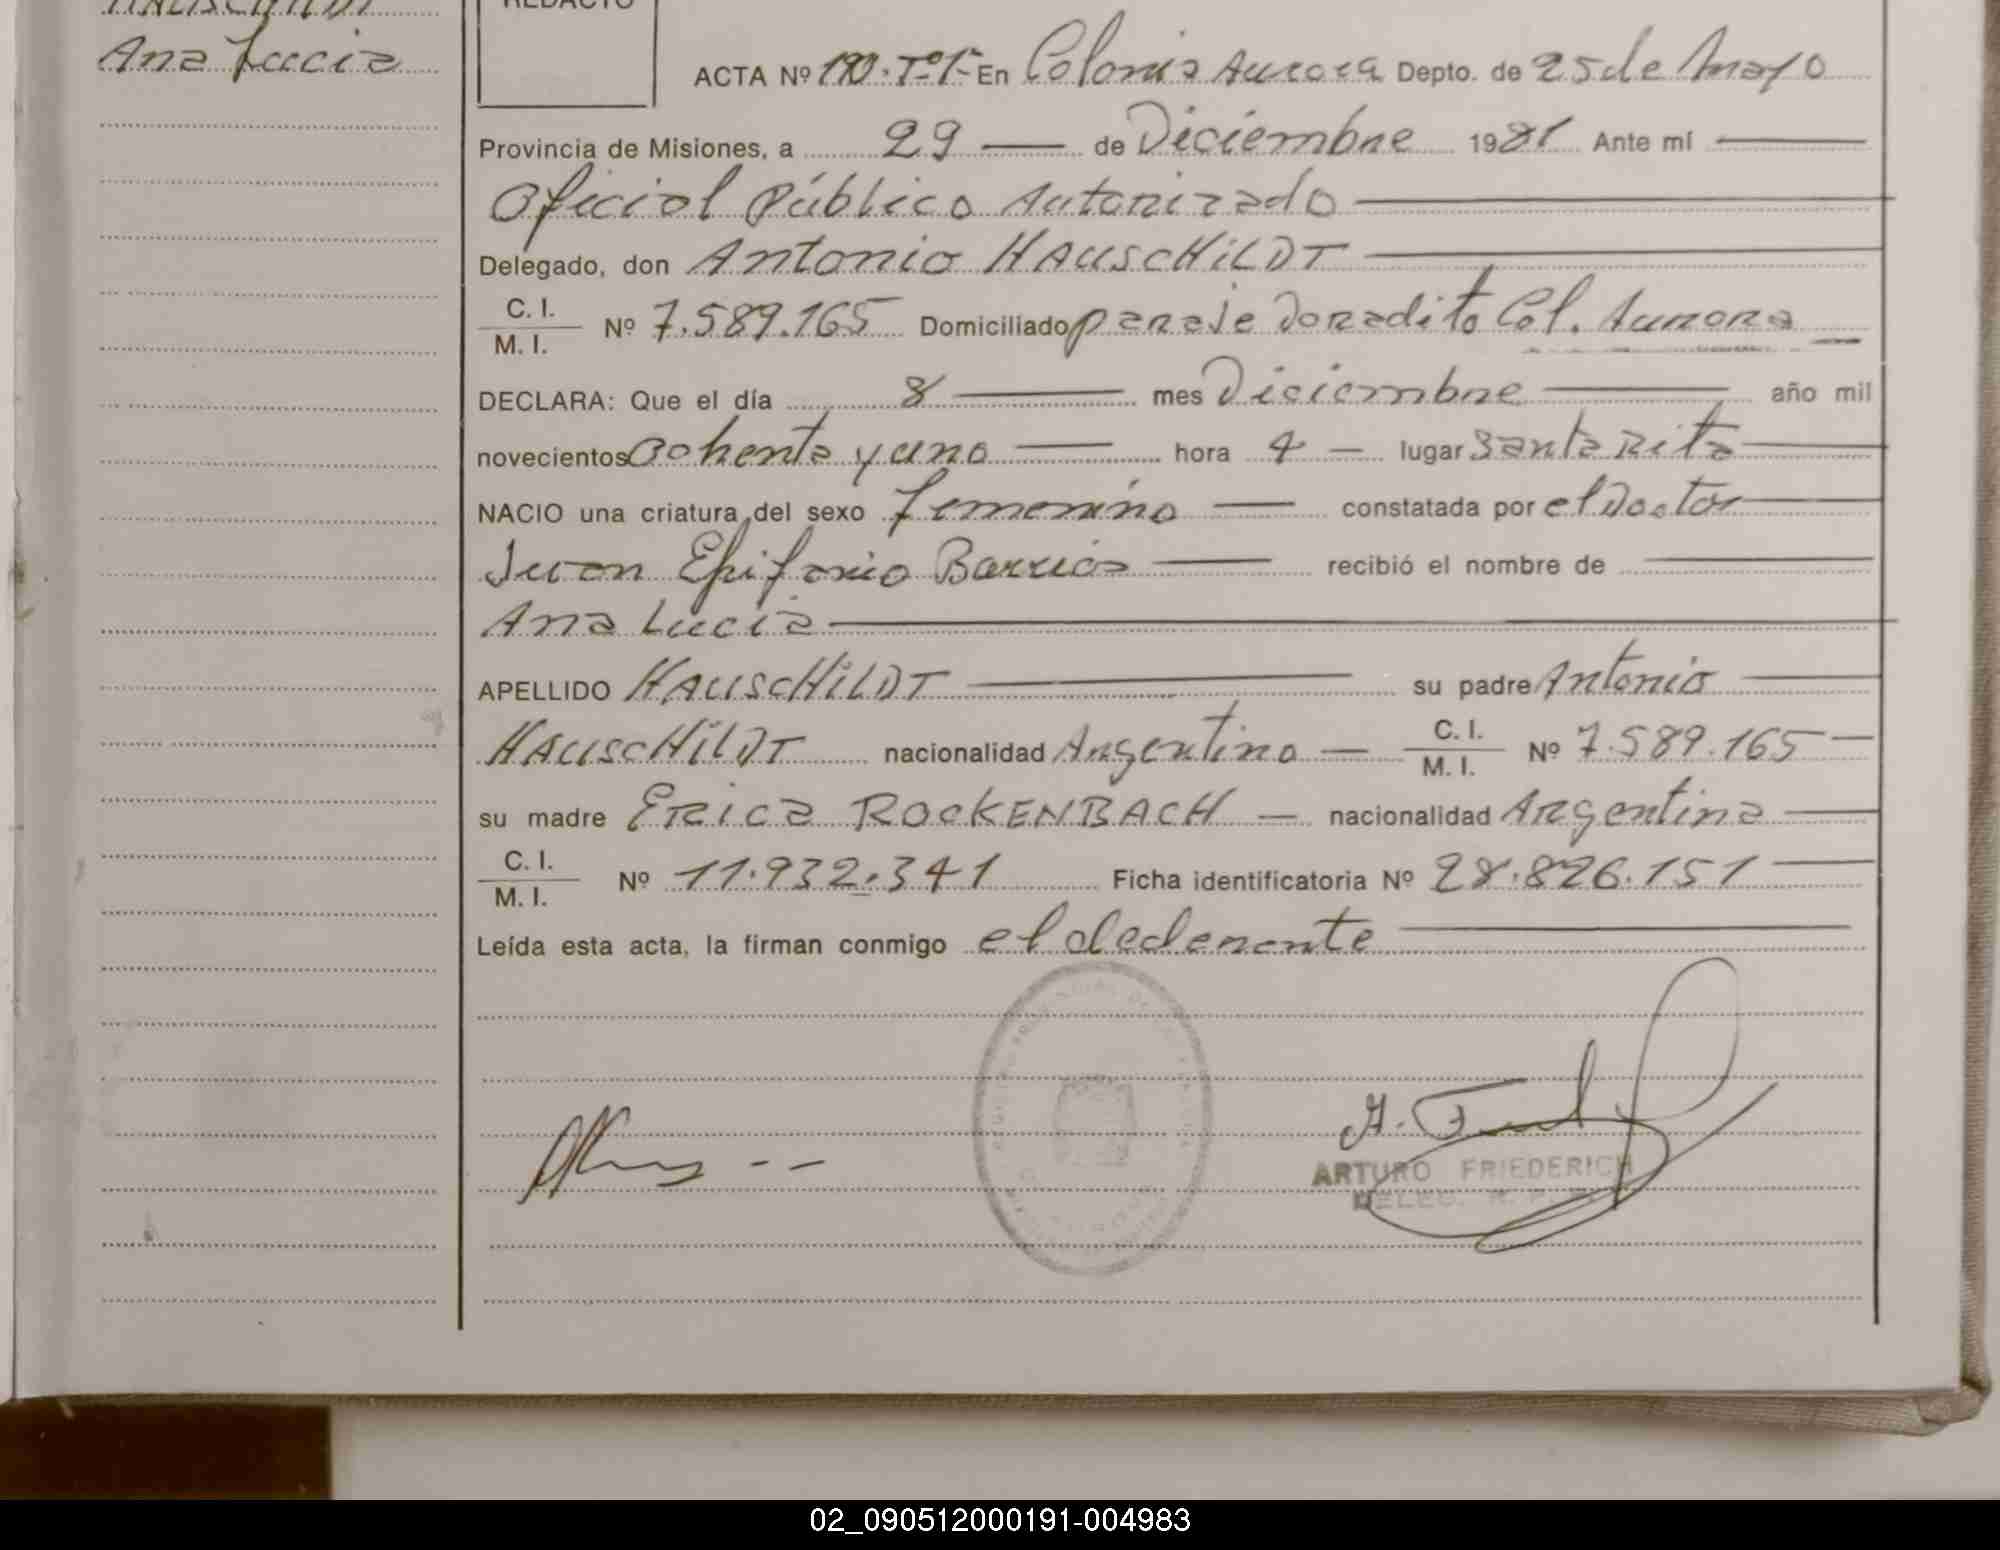 HAUSCHILDT
Ana Lucia
REDACTO
ACTA Nº 190. Tº 1º En Colonia Aurora Depto. de 25 de Mayo
Provincia de Misiones, a 29 — de Diciembre 1981 Ante mí —
Oficial Público Autorizado —
Delegado, don Antonio HAUSCHILDT —
C. I.
M. I. Nº 7.589.165 Domiciliado paraje Doradito Col. Aurora —
DECLARA: Que el día 8 — mes Diciembre — año mil
novecientos ochenta y uno — hora 4 — lugar Santa Rita —
NACIO una criatura del sexo femenino — constatada por el Doctor —
Juan Epifanio Barrios — recibió el nombre de —
Ana Lucia —
APELLIDO HAUSCHILDT — su padre Antonio —
HAUSCHILDT nacionalidad Argentina — C. I. M. I. Nº 7.589.165 —
su madre ERICA ROCKENBACH — nacionalidad Argentina —
C. I.
M. I. Nº 11.932.341 Ficha identificatoria Nº 28.826.151 —
Leída esta acta, la firman conmigo el declarante —
ARTURO FRIEDERICH
DELEG.
02_090512000191-004983